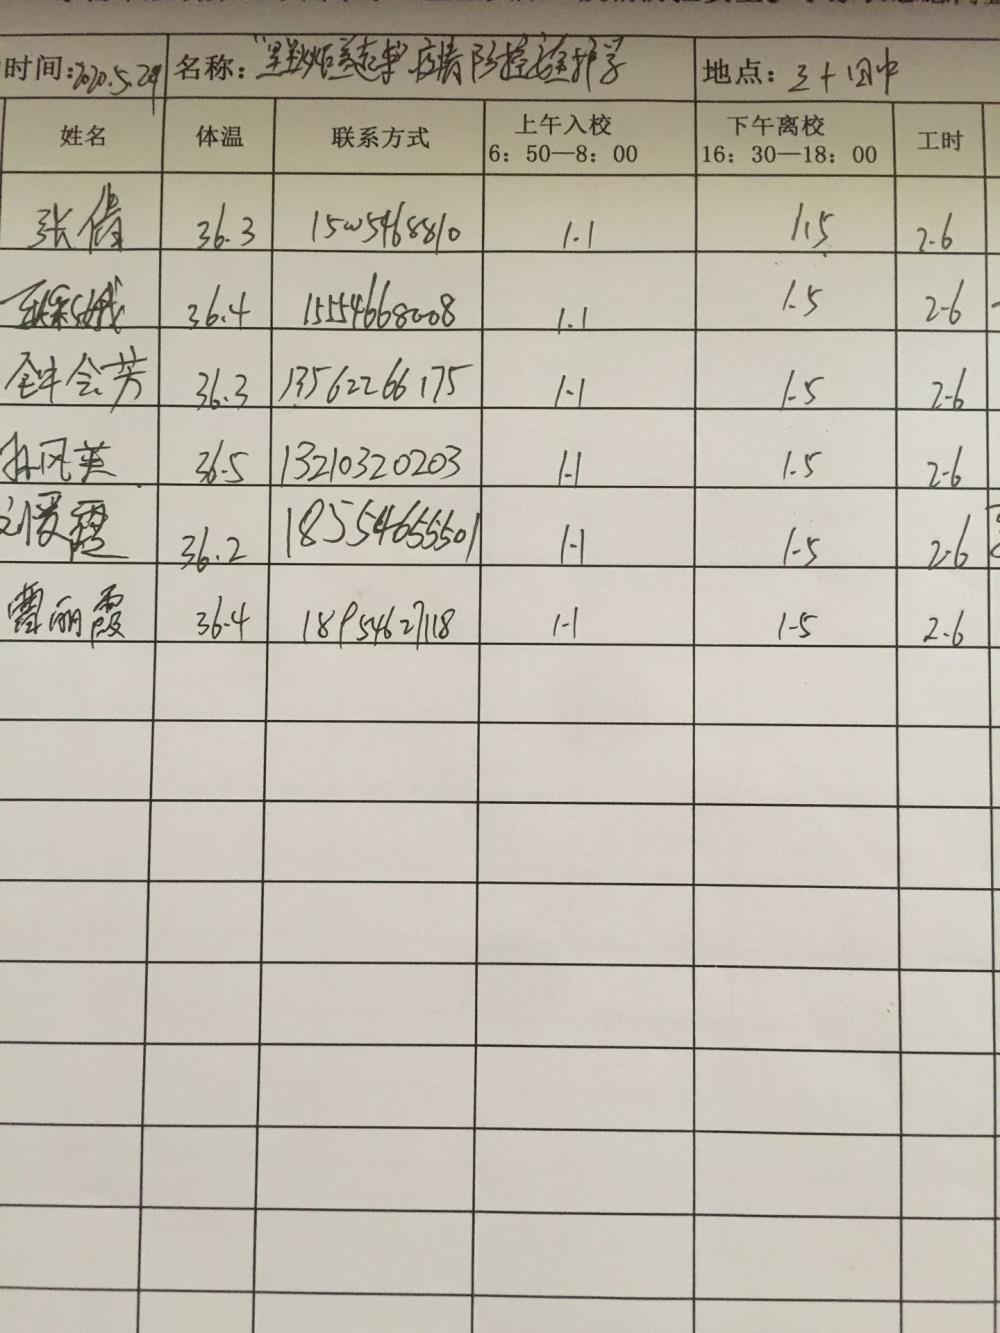 时间:2020.5.29 名称: 疫情防控 护学 地点:
姓名 体温 联系方式 上午入校 下午离校 工时
6:50—8:00 16:30—18:00
张倩 36.3 1.1 1.5 2.6
36.4 15554668008 1.1 1.5 2.6
会芳 36.3 13562266175 1.1 1.5 2.6
孙风英 36.5 13210320203 1.1 1.5 2.6
刘爱霞 36.2 18554655501 1.1 1.5 2.6
丽霞 36.4 18954627118 1.1 1.5 2.6